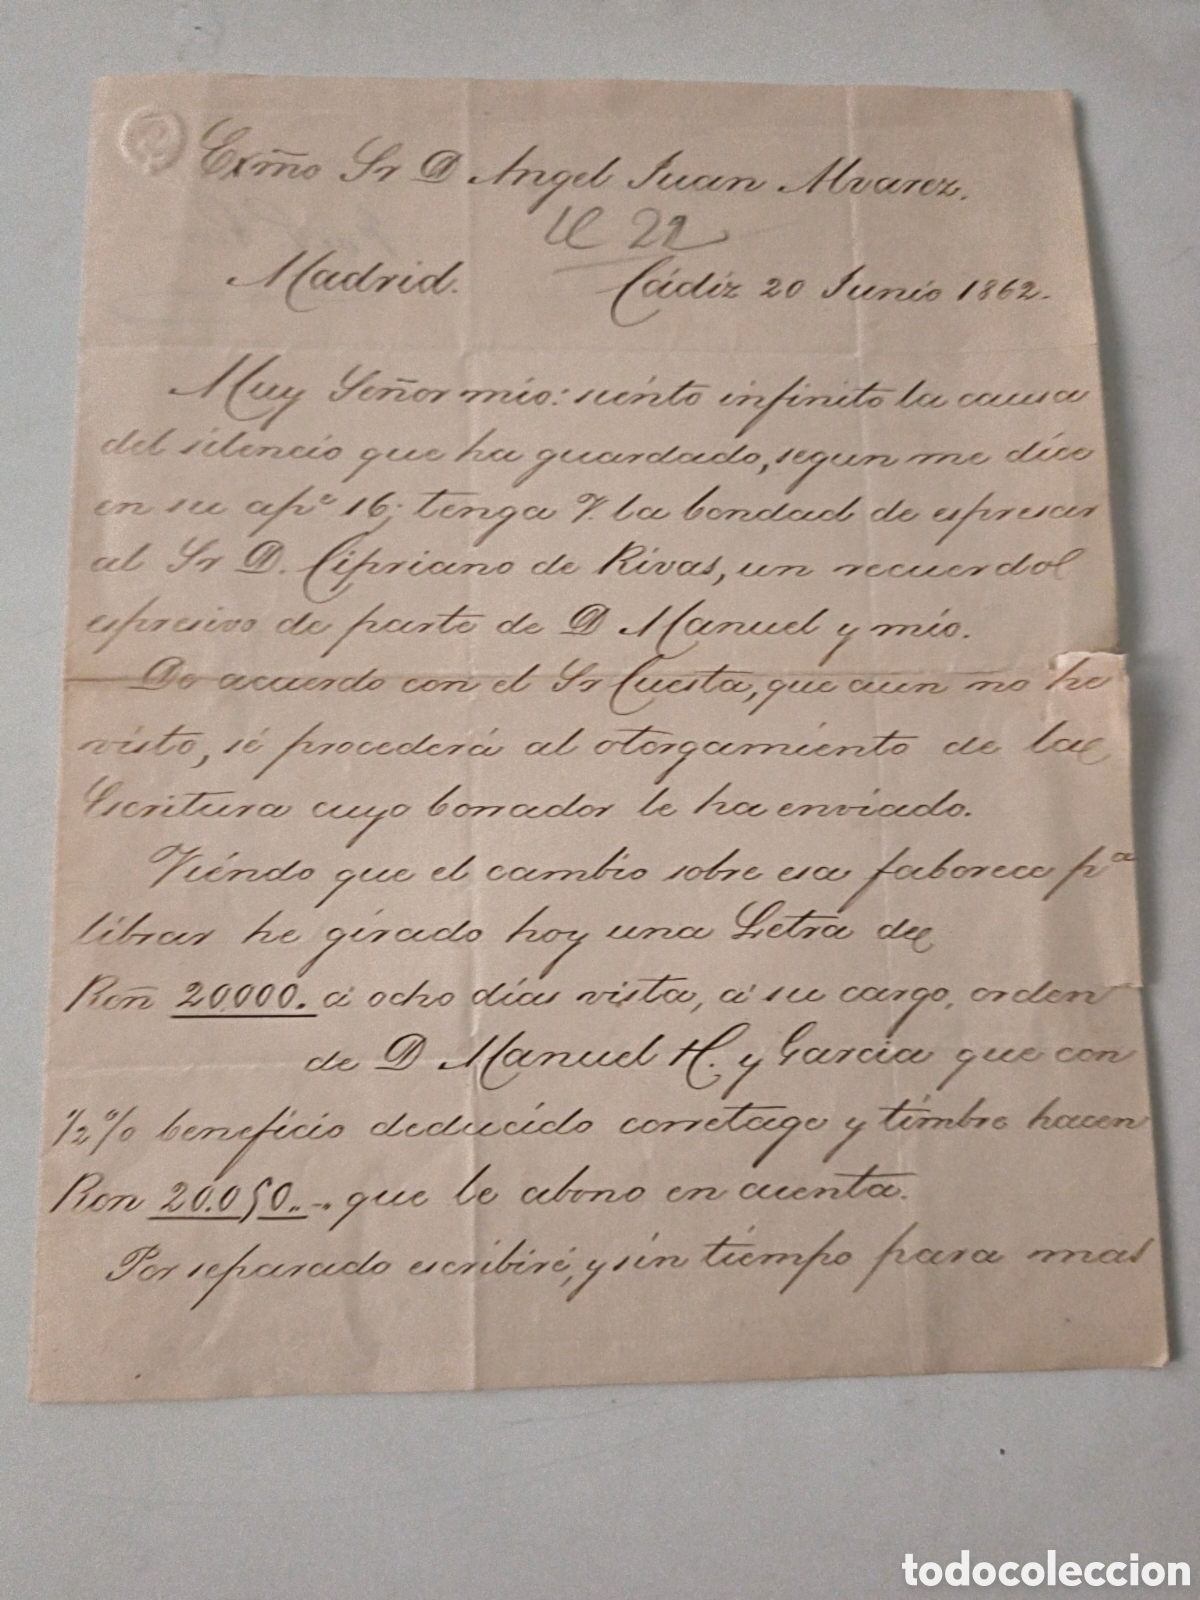 Exmo Sr D Angel Juan Alvarez.
22
Madrid. Cádiz 20 Junio 1862.
Muy Señor mio: siento infinito la causa
del silencio que ha guardado, segun me dice
en su apº 16; tenga V. la bondad de espresar
al Sr D. Cipriano de Rivas, un recuerdo
espresivo de parte de D Manuel y mio.
De acuerdo con el Sr Cuesta, que aun no he
visto, sé procederá al otorgamiento de la
Escritura cuyo borrador le ha enviado.
Viendo que el cambio sobre esa faborece pª
librar he girado hoy una Letra de
Ron 20.000. á ocho dias vista, á su cargo, orden
de D Manuel H. y Garcia que con
1/2 % beneficio deducido corretage y timbre hacen
Ron 20.050..-. que le abono en cuenta.
Por separado escribiré, y sin tiempo para mas
todocoleccion